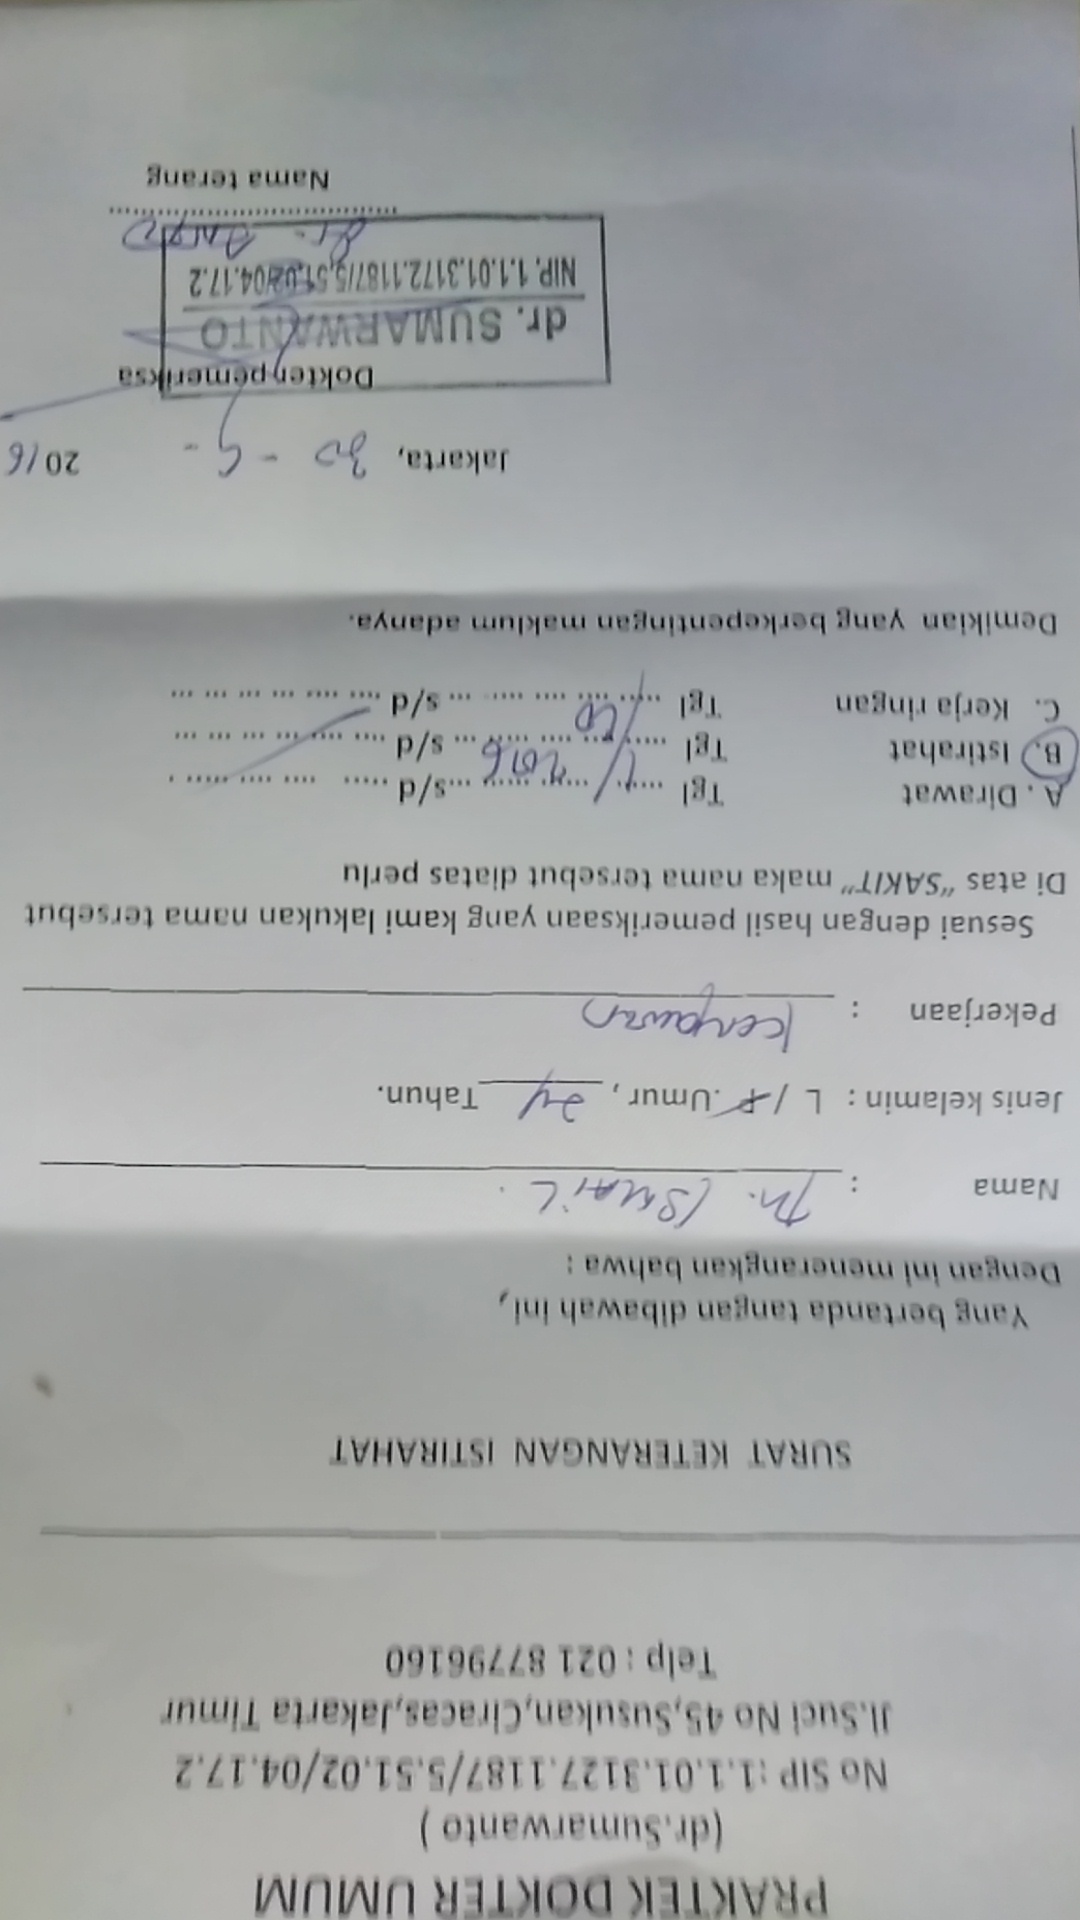 PRAKTEK DOKTER UMUM
(dr.Sumarwanto )
No SIP :1.1.01.3127.1187/5.51.02/04.17.2
Jl.Suci No 45,Susukan,Ciracas,Jakarta Timur
Telp : 021 87796160
SURAT KETERANGAN ISTIRAHAT
Yang bertanda tangan dibawah ini,
Dengan ini menerangkan bahwa :
Nama : ISMAIL.
Jenis kelamin : L / P .Umur , 24 Tahun.
Pekerjaan : Karyawan
Sesuai dengan hasil pemeriksaan yang kami lakukan nama tersebut
Di atas “SAKIT” maka nama tersebut diatas perlu
A . Dirawat Tgl ..... ..... ..... ...s/d ..... .... .... ..... .
B. Istirahat Tgl 1/10 2016 s/d .... .... ... ... ... ...
C. Kerja ringan Tgl ..... .... .... ..... ... s/d .... .... ... ... ... ...
Demikian yang berkepentingan maklum adanya.
Jakarta, 30 - 9 - 2016
Dokter pemeriksa
dr. SUMARWANTO
NIP. 1.1.01.3172.1187/5,51.02/04.17.2
dr.
Nama terang